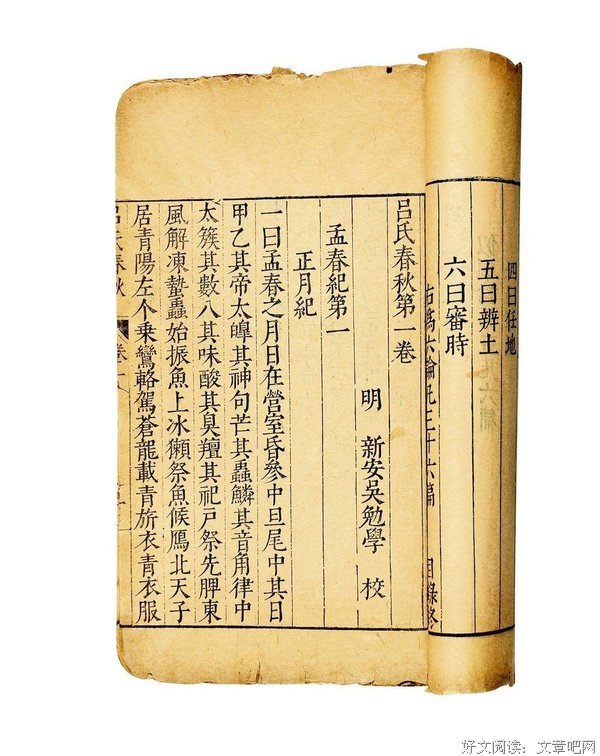 四曰任地
五曰辨土
六曰審時
右爲六論凡三十六篇 目錄終
呂氏春秋第一卷
明 新安吳勉學 校
孟春紀第一
正月紀
一曰孟春之月日在營室昏參中旦尾中其日
甲乙其帝太皥其神句芒其蟲鱗其音角律中
太簇其數八其味酸其臭羶其祀戶祭先脾東
風解凍蟄蟲始振魚上冰獺祭魚候鴈北天子
居青陽左个乘鸞輅駕蒼龍載青旂衣青衣服
呂氏春秋 卷一
好文阅读：文章吧网